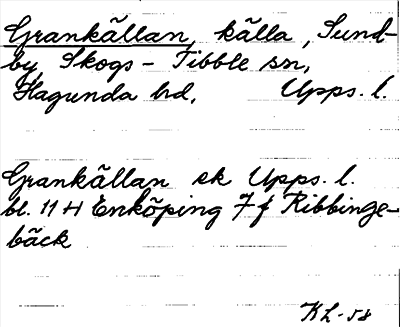 Grankällan, källa, Sund-
by, Skogs-Tibble sn,
Hagunda hd, Upps. l.
Grankällan ek Upps. l.
bl. 11 H Enköping 7 f Ribbinge-
bäck
KL-58